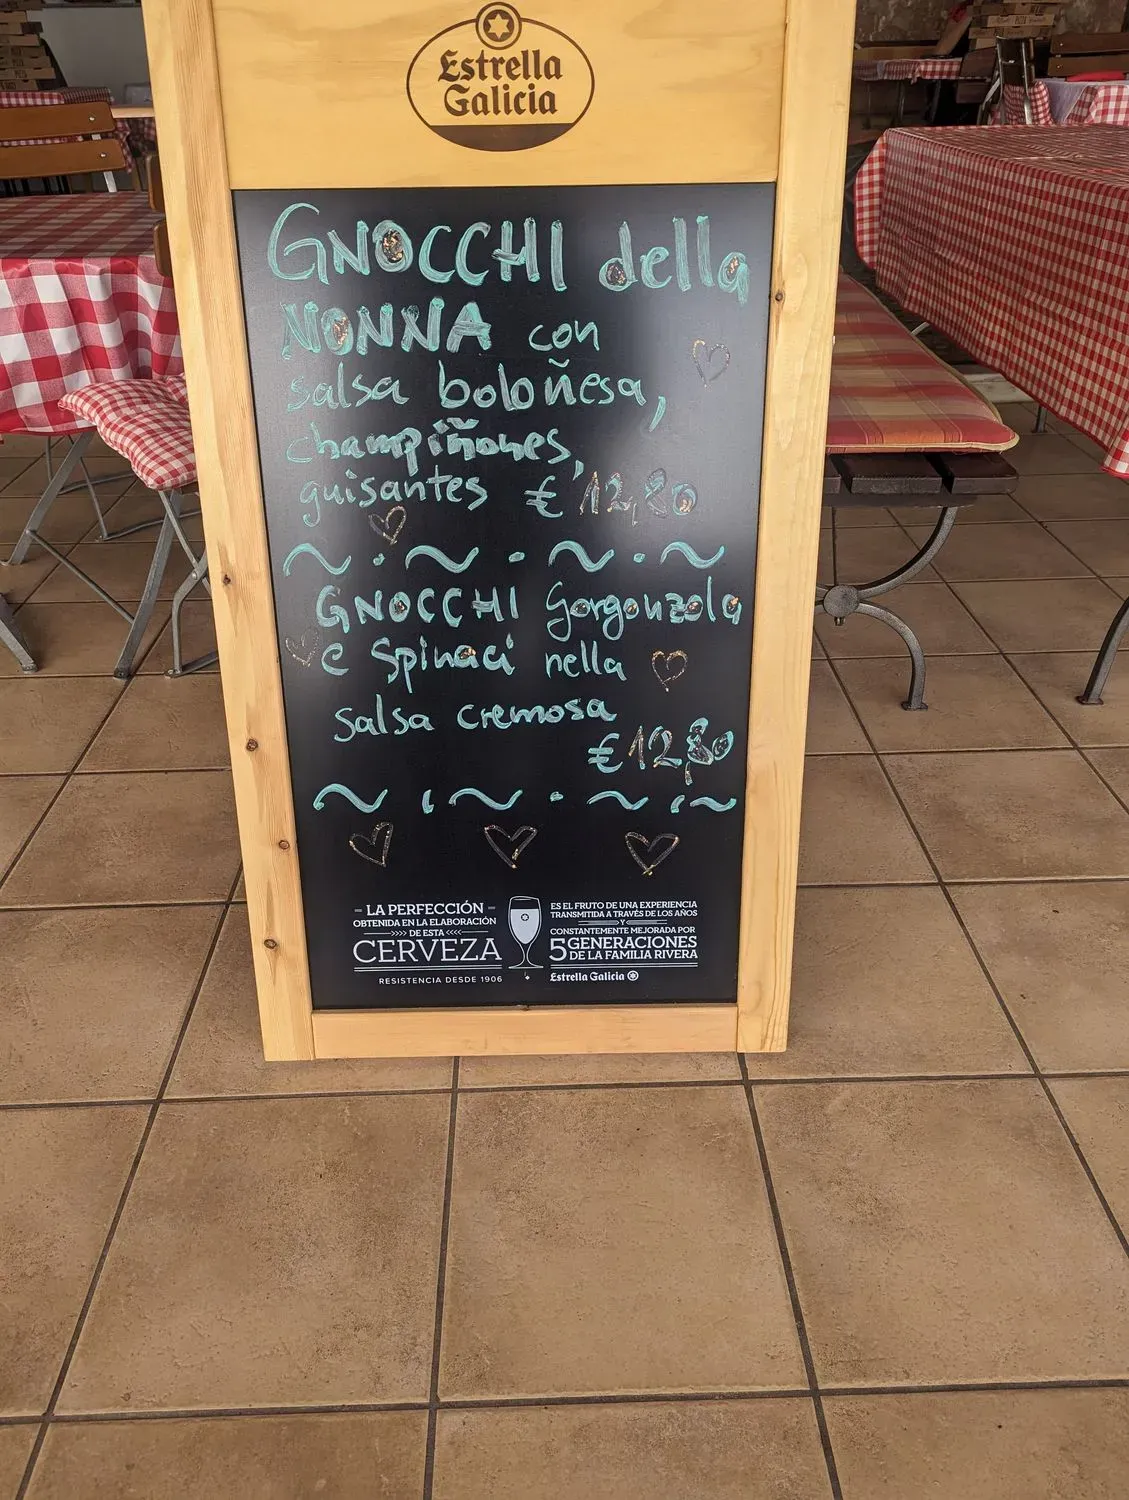 Estrella
Galicia
GNOCCHI della
NONNA con
salsa boloñesa,
champiñones,
guisantes € 12,80
GNOCCHI Gorgonzola
e Spinaci nella
salsa cremosa
€ 12,80
LA PERFECCIÓN
OBTENIDA EN LA ELABORACIÓN
DE ESTA
CERVEZA
RESISTENCIA DESDE 1906
ES EL FRUTO DE UNA EXPERIENCIA
TRANSMITIDA A TRAVÉS DE LOS AÑOS
Y
CONSTANTEMENTE MEJORADA POR
5 GENERACIONES
DE LA FAMILIA RIVERA
Estrella Galicia